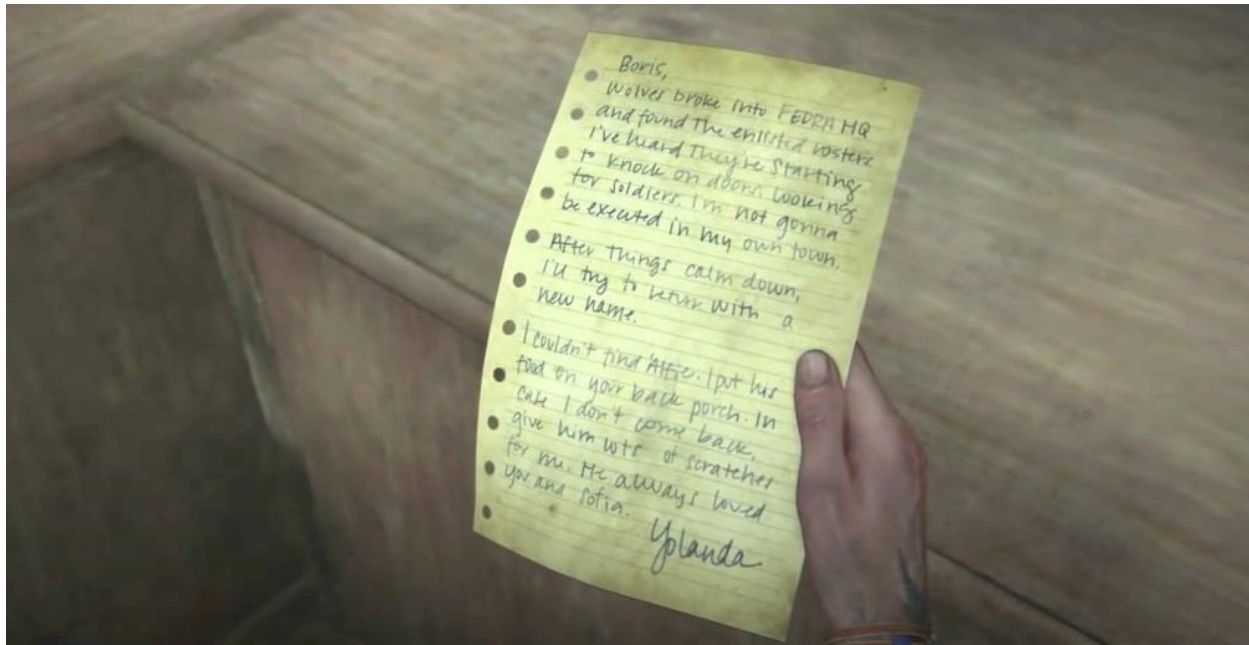 Boris,
Wolves broke into FEDRA HQ
and found the enlisted rosters
I've heard they're starting
to knock on doors. Looking
for soldiers. I'm not gonna
be executed in my own town.
After things calm down,
I'll try to return with a
new name.
I couldn't find Alfie. I put his
food on your back porch. In
case I don't come back,
give him lots of scratches
for me. He always loved
you and Sofia.
Yolanda